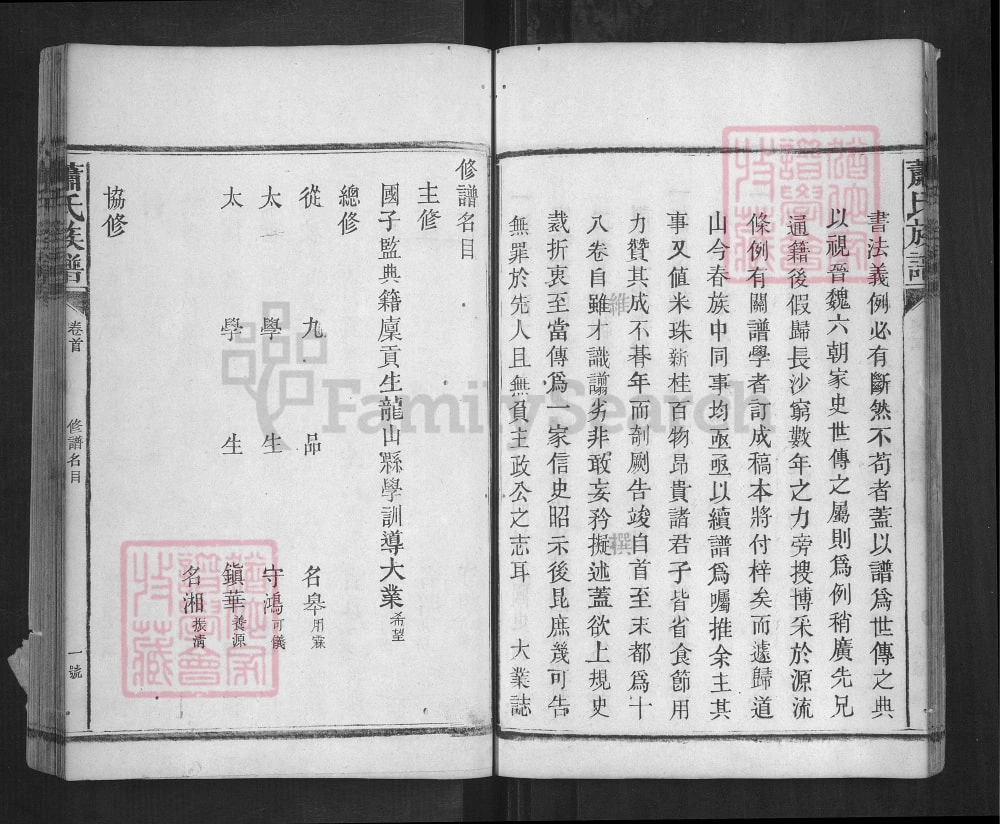 蕭氏族譜
書法義例必有斷然不苟者蓋以譜爲世傳之典
以視晉魏六朝家史世傳之屬則爲例稍廣先兄
通籍後假歸長沙窮數年之力旁搜博采於源流
條例有關譜學者訂成稿本將付梓矣而遽歸道
山今春族中同事均亟亟以續譜爲囑推余主其
事又值米珠新桂百物昂貴諸君子皆省食節用
力贊其成不朞年而剞劂告竣自首至末都爲十
八卷自維才識譾劣非敢妄矜撰述蓋欲上規史
裁折衷至當傳爲一家信史昭示後昆庶幾可告
無罪於先人且無負主政公之志耳 大業誌
修譜名目
主修
國子監典籍廩貢生龍山縣學訓導大業希望
總修
從 九 品 名皋用霖
太 學 生 守鴻可儀
太 學 生 鎭華養源
名湘振淸
協修
蕭氏族譜 卷首 修譜名目 一號
FamilySearch
譜學會